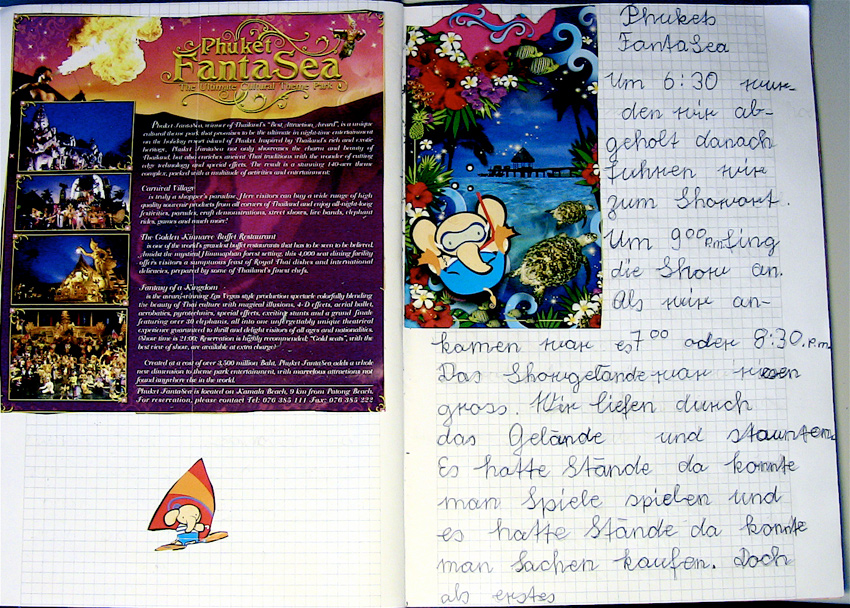 Phuket
FantaSea
The Ultimate Cultural Theme Park
Phuket FantaSea, winner of Thailand's "Best Attraction Award", is a unique
cultural theme park that promises to be the ultimate in night-time entertainment
on the holiday resort island of Phuket. Inspired by Thailand's rich and exotic
heritage, Phuket FantaSea not only showcases the charm and beauty of
Thailand, but also enriches ancient Thai traditions with the wonder of cutting
edge technology and special effects. The result is a stunning 140-acre theme
complex, packed with a multitude of activities and entertainment:
Carnival Village
is truly a shopper's paradise. Here visitors can buy a wide range of high
quality souvenir products from all corners of Thailand and enjoy all-night-long
festivities, parades, craft demonstrations, street shows, live bands, elephant
rides, games and much more!
The Golden Kinnaree Buffet Restaurant
is one of the world's grandest buffet restaurants that has to be seen to be believed.
Amidst the mystical Himmaphan forest setting, this 4,000 seat dining facility
offers visitors a sumptuous feast of Royal Thai dishes and international
delicacies, prepared by some of Thailand's finest chefs.
Fantasy of a Kingdom
is the award-winning Las Vegas style production spectacle colorfully blending
the beauty of Thai culture with magical illusions, 4-D effects, aerial ballet,
acrobatics, pyrotechnics, special effects, exciting stunts and a grand finale
featuring over 30 elephants, all into one unforgettably unique theatrical
experience guaranteed to thrill and delight visitors of all ages and nationalities.
(Show time is 21:00; Reservation is highly recommended; "Gold seats", with the
best view of show, are available at extra charge)
Created at a cost of over 3,500 million Baht, Phuket FantaSea adds a whole
new dimension to theme park entertainment, with marvelous attractions not
found anywhere else in the world.
Phuket FantaSea is located on Kamala Beach, 9 km from Patong Beach.
For reservation, please contact Tel: 076 385 111 Fax: 076 385 222
Phukets
FantaSea
Um 6:30 wur-
den wir ab-
geholt danach
fuhren wir
zum Showort.
Um 9⁰⁰ pm fing
die Show an.
Als wir an-
kamen war es 7⁰⁰ oder 8:30. p.m
Das Showgelände war riesen
gross. Wir liefen durch
das Gelände und staunten.
Es hatte Stände da konnte
man Spiele spielen und
es hatte Stände da konnte
man Sachen kaufen. Doch
als erstes